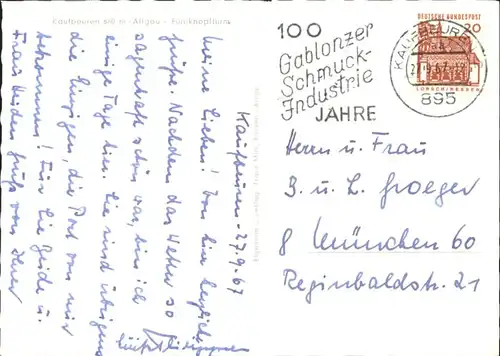 Kaufbeuren 680 m - Allgäu - Fünfknopfturm
Kaufbeuren - 27.9.67
Meine Lieben! Von hier herzliche
Grüße. Nachdem das Wetter so
sagenhaft schön war, bin ich
einige Tage hier. Sie sind übrigens
die Einzigen, die Post von mir
bekommen! Für Sie Beide u.
Frau Gruß von Ihrer
100
Gablonzer
Schmuck-
Industrie
JAHRE
DEUTSCHE BUNDESPOST
20
LORSCH/HESSEN
KAUFBEUREN
27.9.67
895
Herrn u. Frau
B. u. L. Groeger
8 München 60
Reginbaldstr. 21